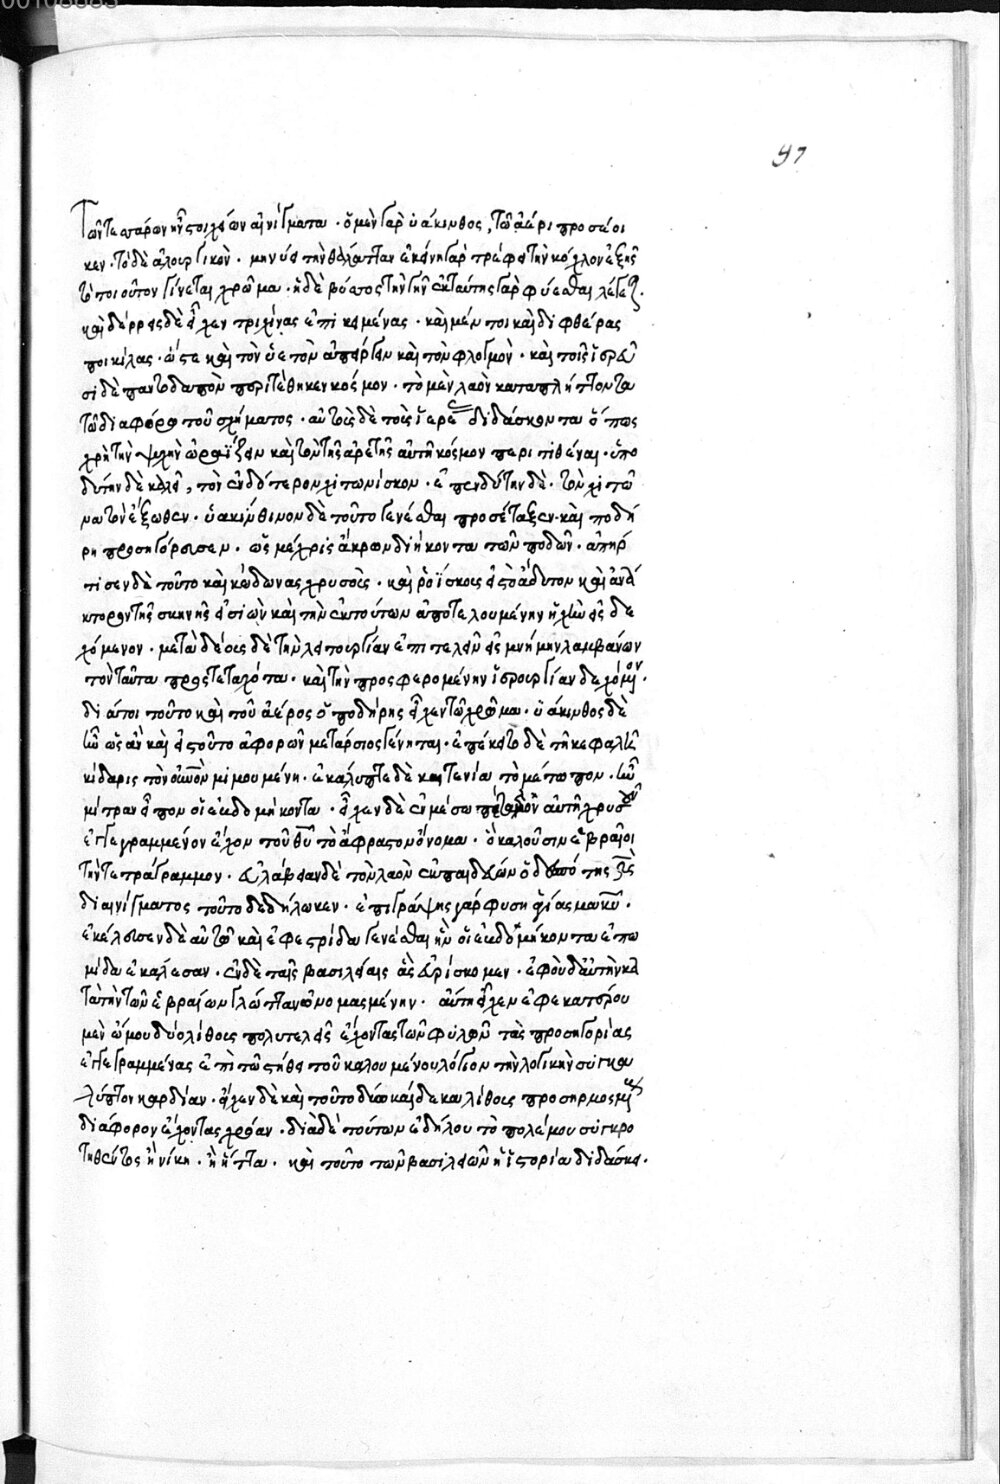 00108885
97
τῶν τεσσάρων ἦν στοιχείων αἰνίγματα · ὁ μὲν γὰρ ὑάκινθος, τῷ ἀέρι προσέοι
κεν · τὸ δὲ ἁλουργικὸν · μηνύει τὴν θάλατταν ἐκείνη γὰρ τρέφει τὴν κόχλον ἐξ ἧς
τὸ τοιοῦτον γίνεται χρῶμα · ἡ δὲ βύσσος τὴν γῆν ἐκ ταύτης γὰρ φύεσθαι λέγεται.
καὶ δέρρεις δὲ εἶχεν τριχίνας ἐπικειμένας · καὶ μέν τοι καὶ διφθέρας
ποικίλας · ὥστε καὶ τὸν ὑετὸν ἀπείργειν καὶ τὸν φλογμὸν · καὶ τοῖς ἱερεῦ
σι δὲ παντοδαπὸν περιτέθηκεν κόσμον · τὸ μὲν λαὸν καταπλήττοντα
τῷ διαφόρῳ τοῦ σχήματος · αὐτοὺς δὲ τοὺς ἱερεῖς διδάσκοντα ὅπως
χρὴ τὴν ψυχὴν ὡραΐζειν καὶ τὸν τῆς ἀρετῆς αὐτῇ κόσμον περιτιθέναι · ὑπο
δύτην δὲ καλεῖ, τὸν ἐνδότερον χιτωνίσκον · ἐπενδύτην δὲ · τὸν χιτῶ
να τὸν ἔξωθεν · ὑακίνθινον δὲ τοῦτο γενέσθαι προσέταξεν · καὶ ποδή
ρη προσηγόρευσεν · ὡς μέχρις ἄκρων διήκοντα τῶν ποδῶν · ἀπήρ
τισεν δὲ τοῦτο καὶ κώδωνας χρυσοῖς · καὶ ῥοΐσκοις εἰς τὸ ἄδυτον καὶ ἀνά
κτορον τῆς σκηνῆς εἰσιὼν καὶ τὴν ἐκ τούτων ἀποτελουμένην ἠχὼ εἰσδε
χόμενον · μετὰ δέους δὲ τὴν λειτουργίαν ἐπιτελεῖν εἰς μνήμην λαμβάνων
τὸν ταῦτα προστεταχότα · καὶ τὴν προσφερομένην ἱερουργίαν δεχόμενον ·
διά τοι τοῦτο καὶ τοῦ ἀέρος ὁ ποδήρης εἶχεν τὸ χρῶμα · ὑάκινθος δὲ
ἦν ὡς ἂν καὶ εἰς τοῦτο ἀφορῶν μετάρσιος γένηται · ἐπέκειτο δὲ τῇ κεφαλῇ
κίδαρις τὸν οὐνὸν μιμουμένη · ἐκάλυπτε δὲ καὶ ταινία τὸ μέτωπον · ἣν
μίτραν εἶπον οἱ ἑβδομήκοντα · εἶχεν δὲ ἐν μέσῳ πέταλον αὐτῇ χρυσοῦν
ἐγγεγραμμένον ἔχον τοῦ θυ τὸ ἄφραστον ὄνομα · ὃ καλοῦσιν ἑβραῖοι
τὴν τετράγραμμον · εὐλάβειαν δὲ τὸν λαὸν ἐκπαιδεύων ὁ δεσπότης χς
δι αἰνίγματος τοῦτο δεδήλωκεν ·
ἐκέλευσεν δὲ αὐτὸν καὶ ἐφεστρίδα γενέσθαι ἣν οἱ ἑβδομήκοντα ἐπω
μίδα ἐκάλεσαν · ἐν δὲ ταῖς βασιλείαις ἃς εὑρίσκομεν · ἐφοὺδ αὐτὴν κα
τὰ τὴν τῶν ἑβραίων γλῶτταν ὠνομασμένην · αὕτη εἶχεν ἐφ' ἑκατέρου
μὲν ὤμου δύο λίθους πολυτελεῖς ἔχοντας τῶν φυλῶν τὰς προσηγορίας
ἐγγεγραμμένας ἐπὶ τῷ στήθει τοῦ καλουμένου λόγιον τὴν λογικὴν συγκα
λύπτον καρδίαν · εἶχεν δὲ καὶ τοῦτο δυοκαίδεκα λίθους προσηρμοσμένους
διάφορον ἔχοντας χρόαν · διὰ δὲ τούτων ἐδήλου τὸ πολέμου συγκρο
τηθέντος ἡ νίκη · ἢ ἧττα · καὶ τοῦτο τῶν βασιλειῶν ἡ ἱστορία διδάσκει.